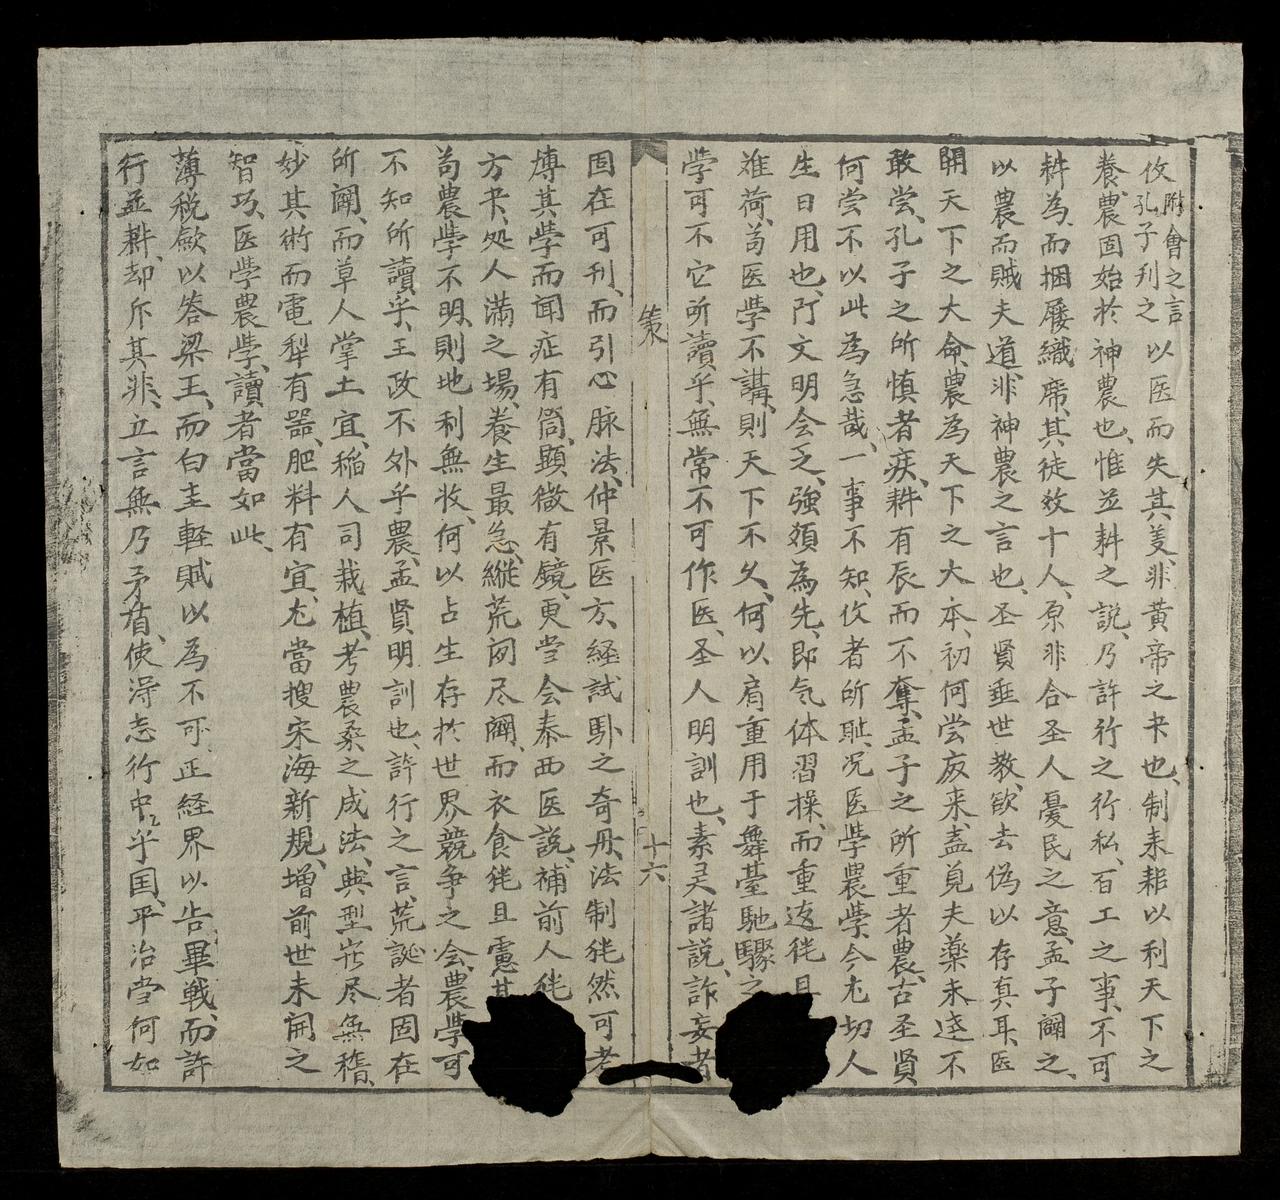 附會之言
攷孔子刋之以医而失其美、非黄帝之卡也、制耒耜以利天下之
養、農固始於神農也、惟並耕之説、乃許行之行私、百工之事、不可
耕為、而捆屨織席、其徒效十人、原非合圣人憂民之意、孟子闢之、
以農而賊夫道、非神農之言也、圣贤垂世教、欲去偽以存真耳、医
開天下之大命、農為天下之大本、初何尝废来、盖見夫薬未達不
敢尝、孔子之所慎者疾、耕有辰而不奪、孟子之所重者農、古圣贤
何尝不以此為急哉、一事不知、攷者所耻、况医學農學、今尤切人
生日用也、門文明会之、強須為先、即気体習操、而重返毪且
难荷、苟医學不講、則天下不久、何以肩重用于舞臺馳驟之
學可不它所讀乎、無常不可作医、圣人明訓也、素灵諸説、詐妄者
策
十六
固在可刋、而引心脉法、仲景医方、経試卧之奇丹、法制毪然可考
慱其學而闻症有筒、顕微有鏡、更尝会泰西医説、補前人毪
方来、处人满之場、養生最急、縱荒闵尽闢、而衣食毪且慮其
苟農學不明、則地利無收、何以占生存於世界競争之会、農學可
不知所讀乎、王政不外乎農、孟贤明訓也、許行之言、荒誕者固在
所闢、而草人掌土宜、稲人司栽植、考農桑之成法、典型岩尽無稽、
妙其術而電犁有噐、肥料有宜、尤當搜宋海新規、增前世未開之
智巧、医學農學、讀者當如此、
薄税歛以答梁王、而白圭軽賦以為不可、正経界以告畢戦、而許
行並耕、却斥其非、立言無乃矛盾、使淂志行中乊乎国、平治尝何如